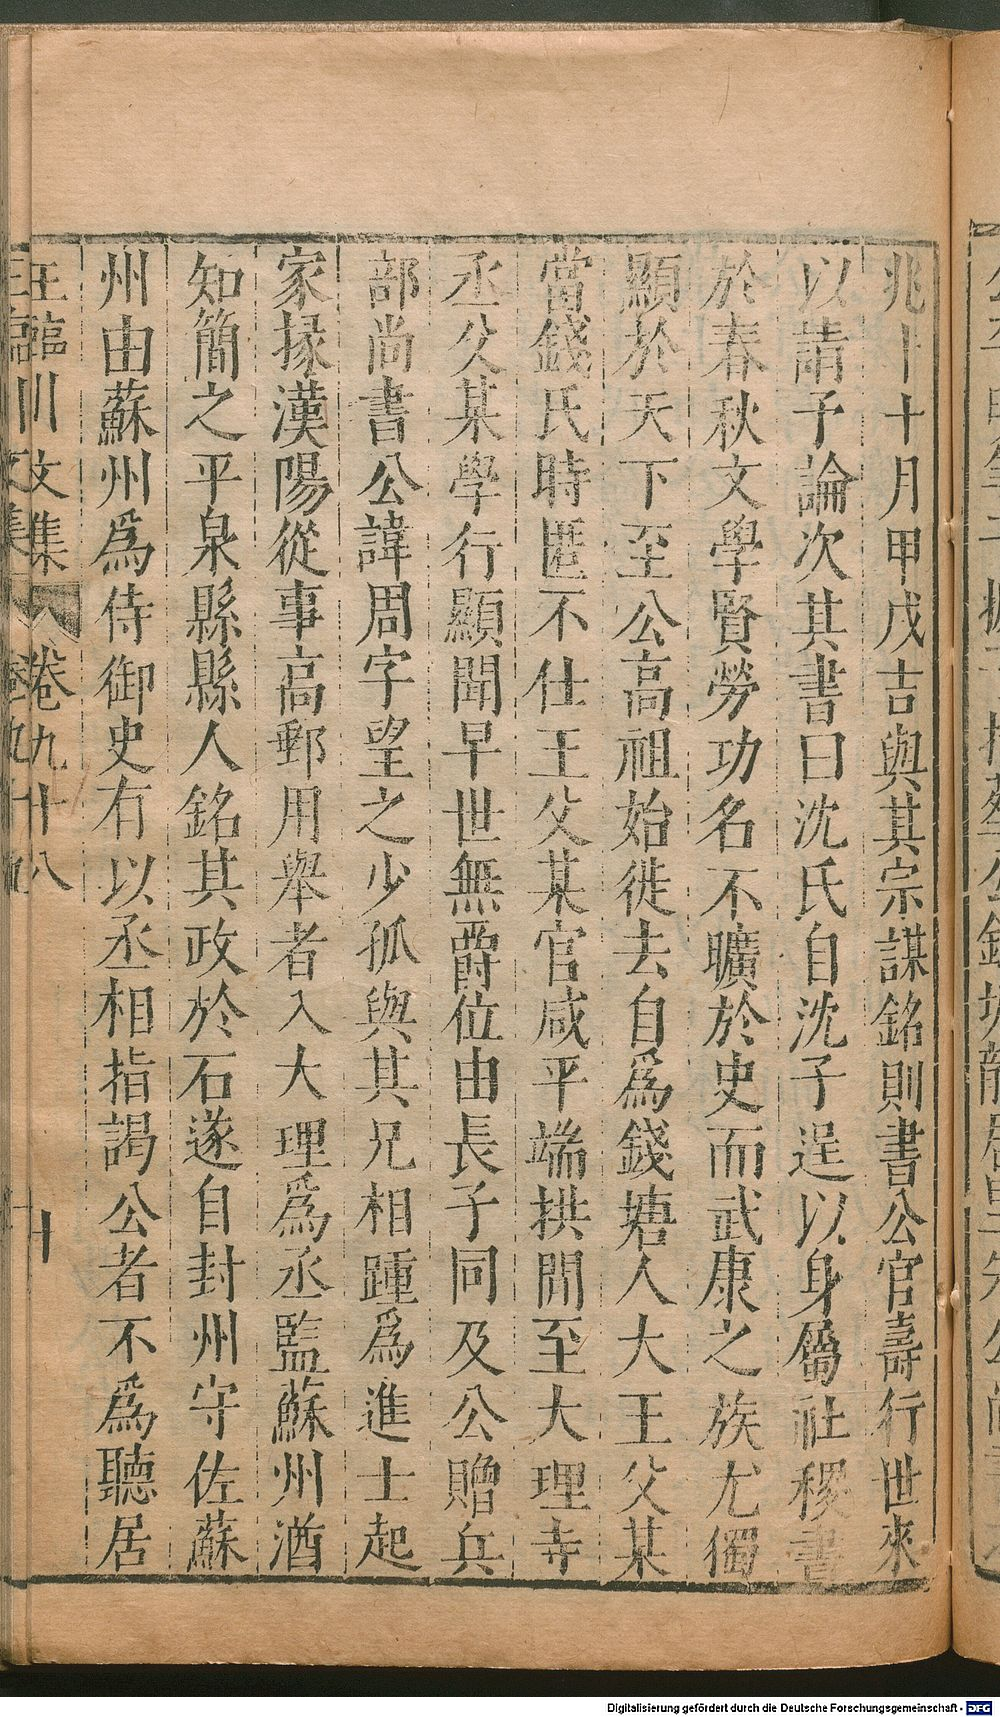 兆卜十月甲戊吉與其宗謀銘則書公官壽行世來
以請予論次其書曰沈氏自沈子逞以身屬社稷書
於春秋文學賢勞功名不曠於史而武康之族尤獨
顯於天下至公高祖始徙去自爲錢塘人大王父某
當錢氏時匿不仕王父某官咸平端拱間至大理寺
丞父某學行顯聞早世無爵位由長子同及公贈兵
部尚書公諱周字望之少孤與其兄相踵爲進士起
家掾漢陽從事高郵用舉者入大理爲丞監蘇州酒
知簡之平泉縣縣人銘其政於石遂自封州守佐蘇
州由蘇州爲侍御史有以丞相指謁公者不爲聽居
王臨川文集 卷九十八 十
Digitalisierung gefördert durch die Deutsche Forschungsgemeinschaft - DFG